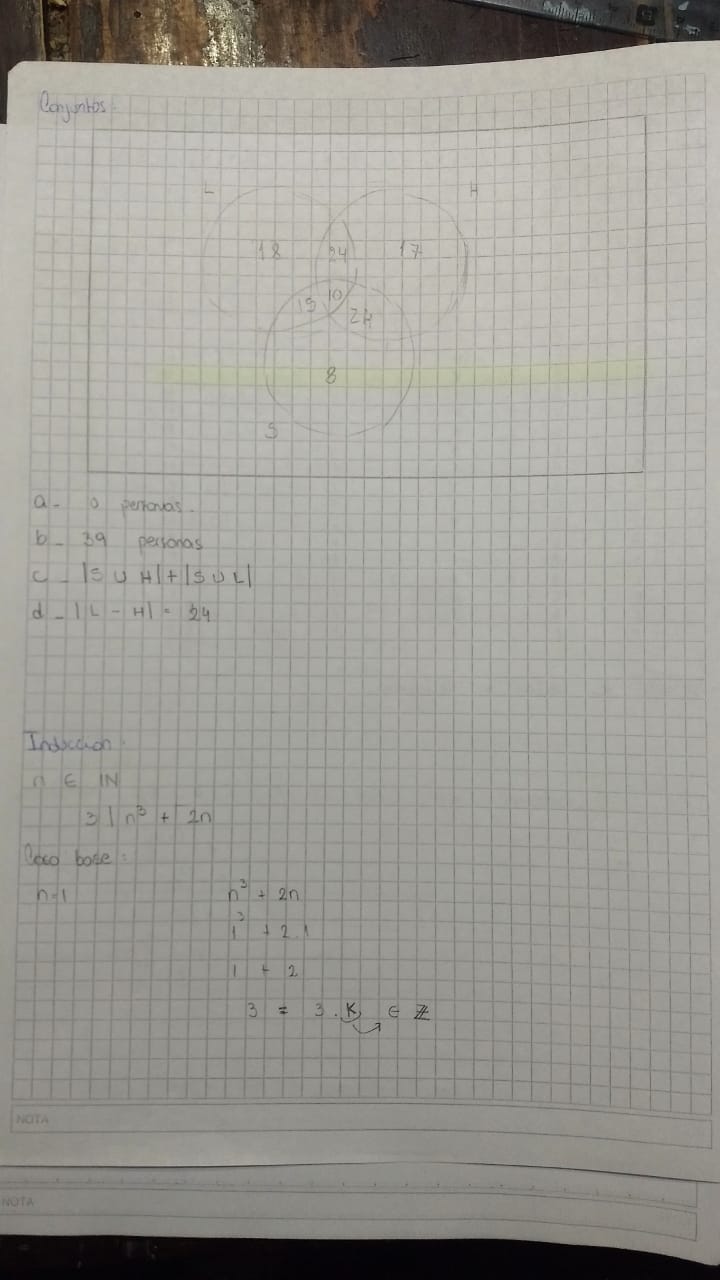 Conjuntos.
L H
18 24 17
10
15 24
8
S
a- 0 personas.
b- 39 personas
c- |S U H| + |S U L|
d- |L - H| = 24
Induccion.
n ∈ IN
3 | n³ + 2n
Caso base:
n=1 n³ + 2n
1³ + 2.1
1 + 2
3 = 3.K ∈ ℤ
NOTA
NOTA